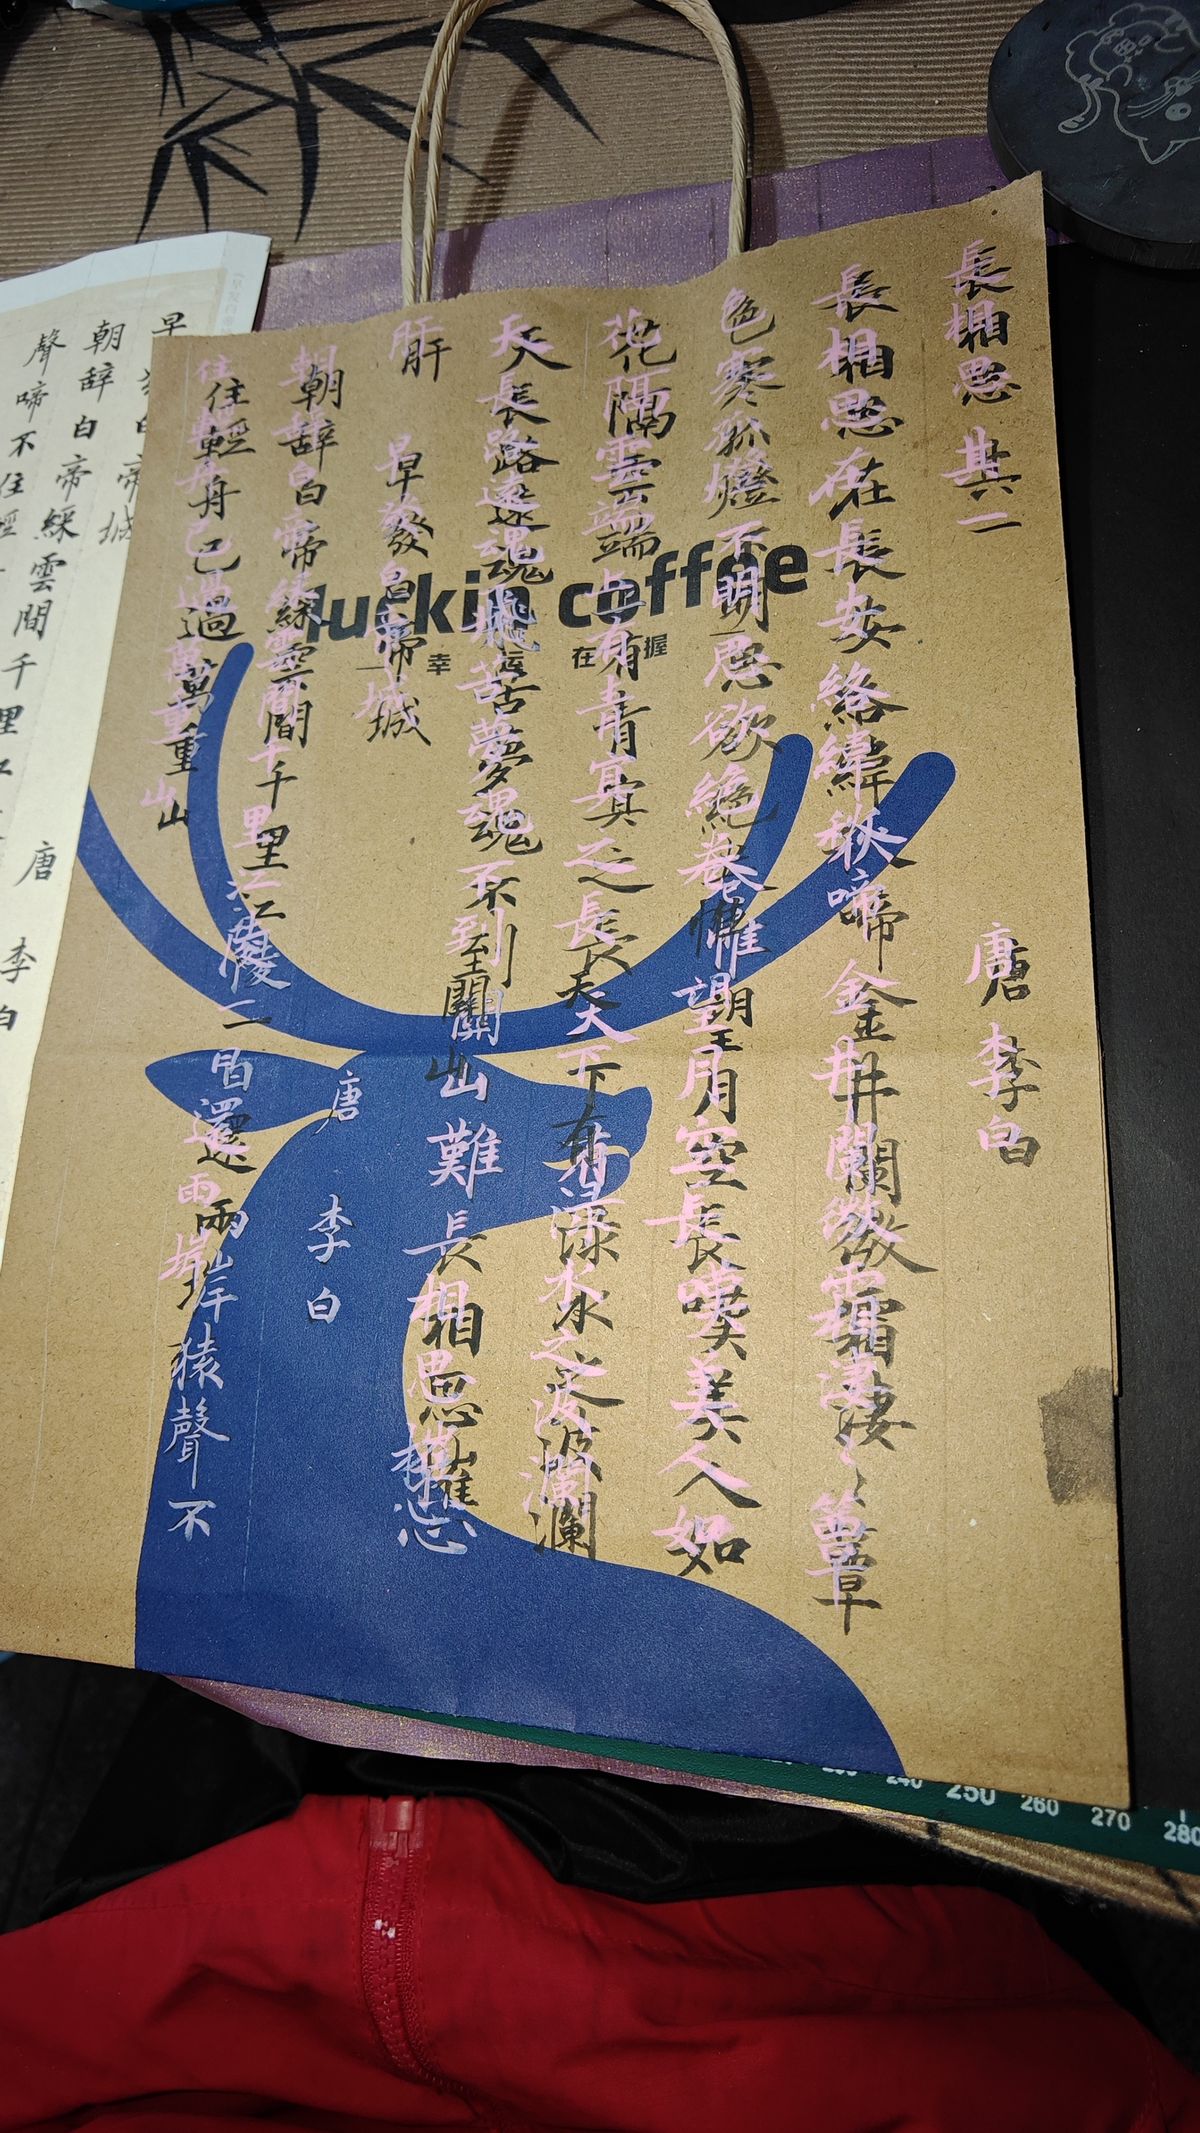 長相思 其一
唐 李白
長相思在長安絡緯秋啼金井闌微霜淒〻簟
色寒孤燈不明思欲絕卷帷望月空長嘆美人如
花隔雲端上有青冥之長天下有淥水之波瀾
天長路遠魂飛苦夢魂不到關山難長相思摧心
肝
早發白帝城
唐 李白
朝辭白帝綵雲間千里江陵一日還兩岸猿聲不
住輕舟已過萬重山
luckin coffee
幸運在握
早發白帝城
唐 李白
朝辭白帝綵雲間千里江
聲啼不住輕
240 250 260 270 280